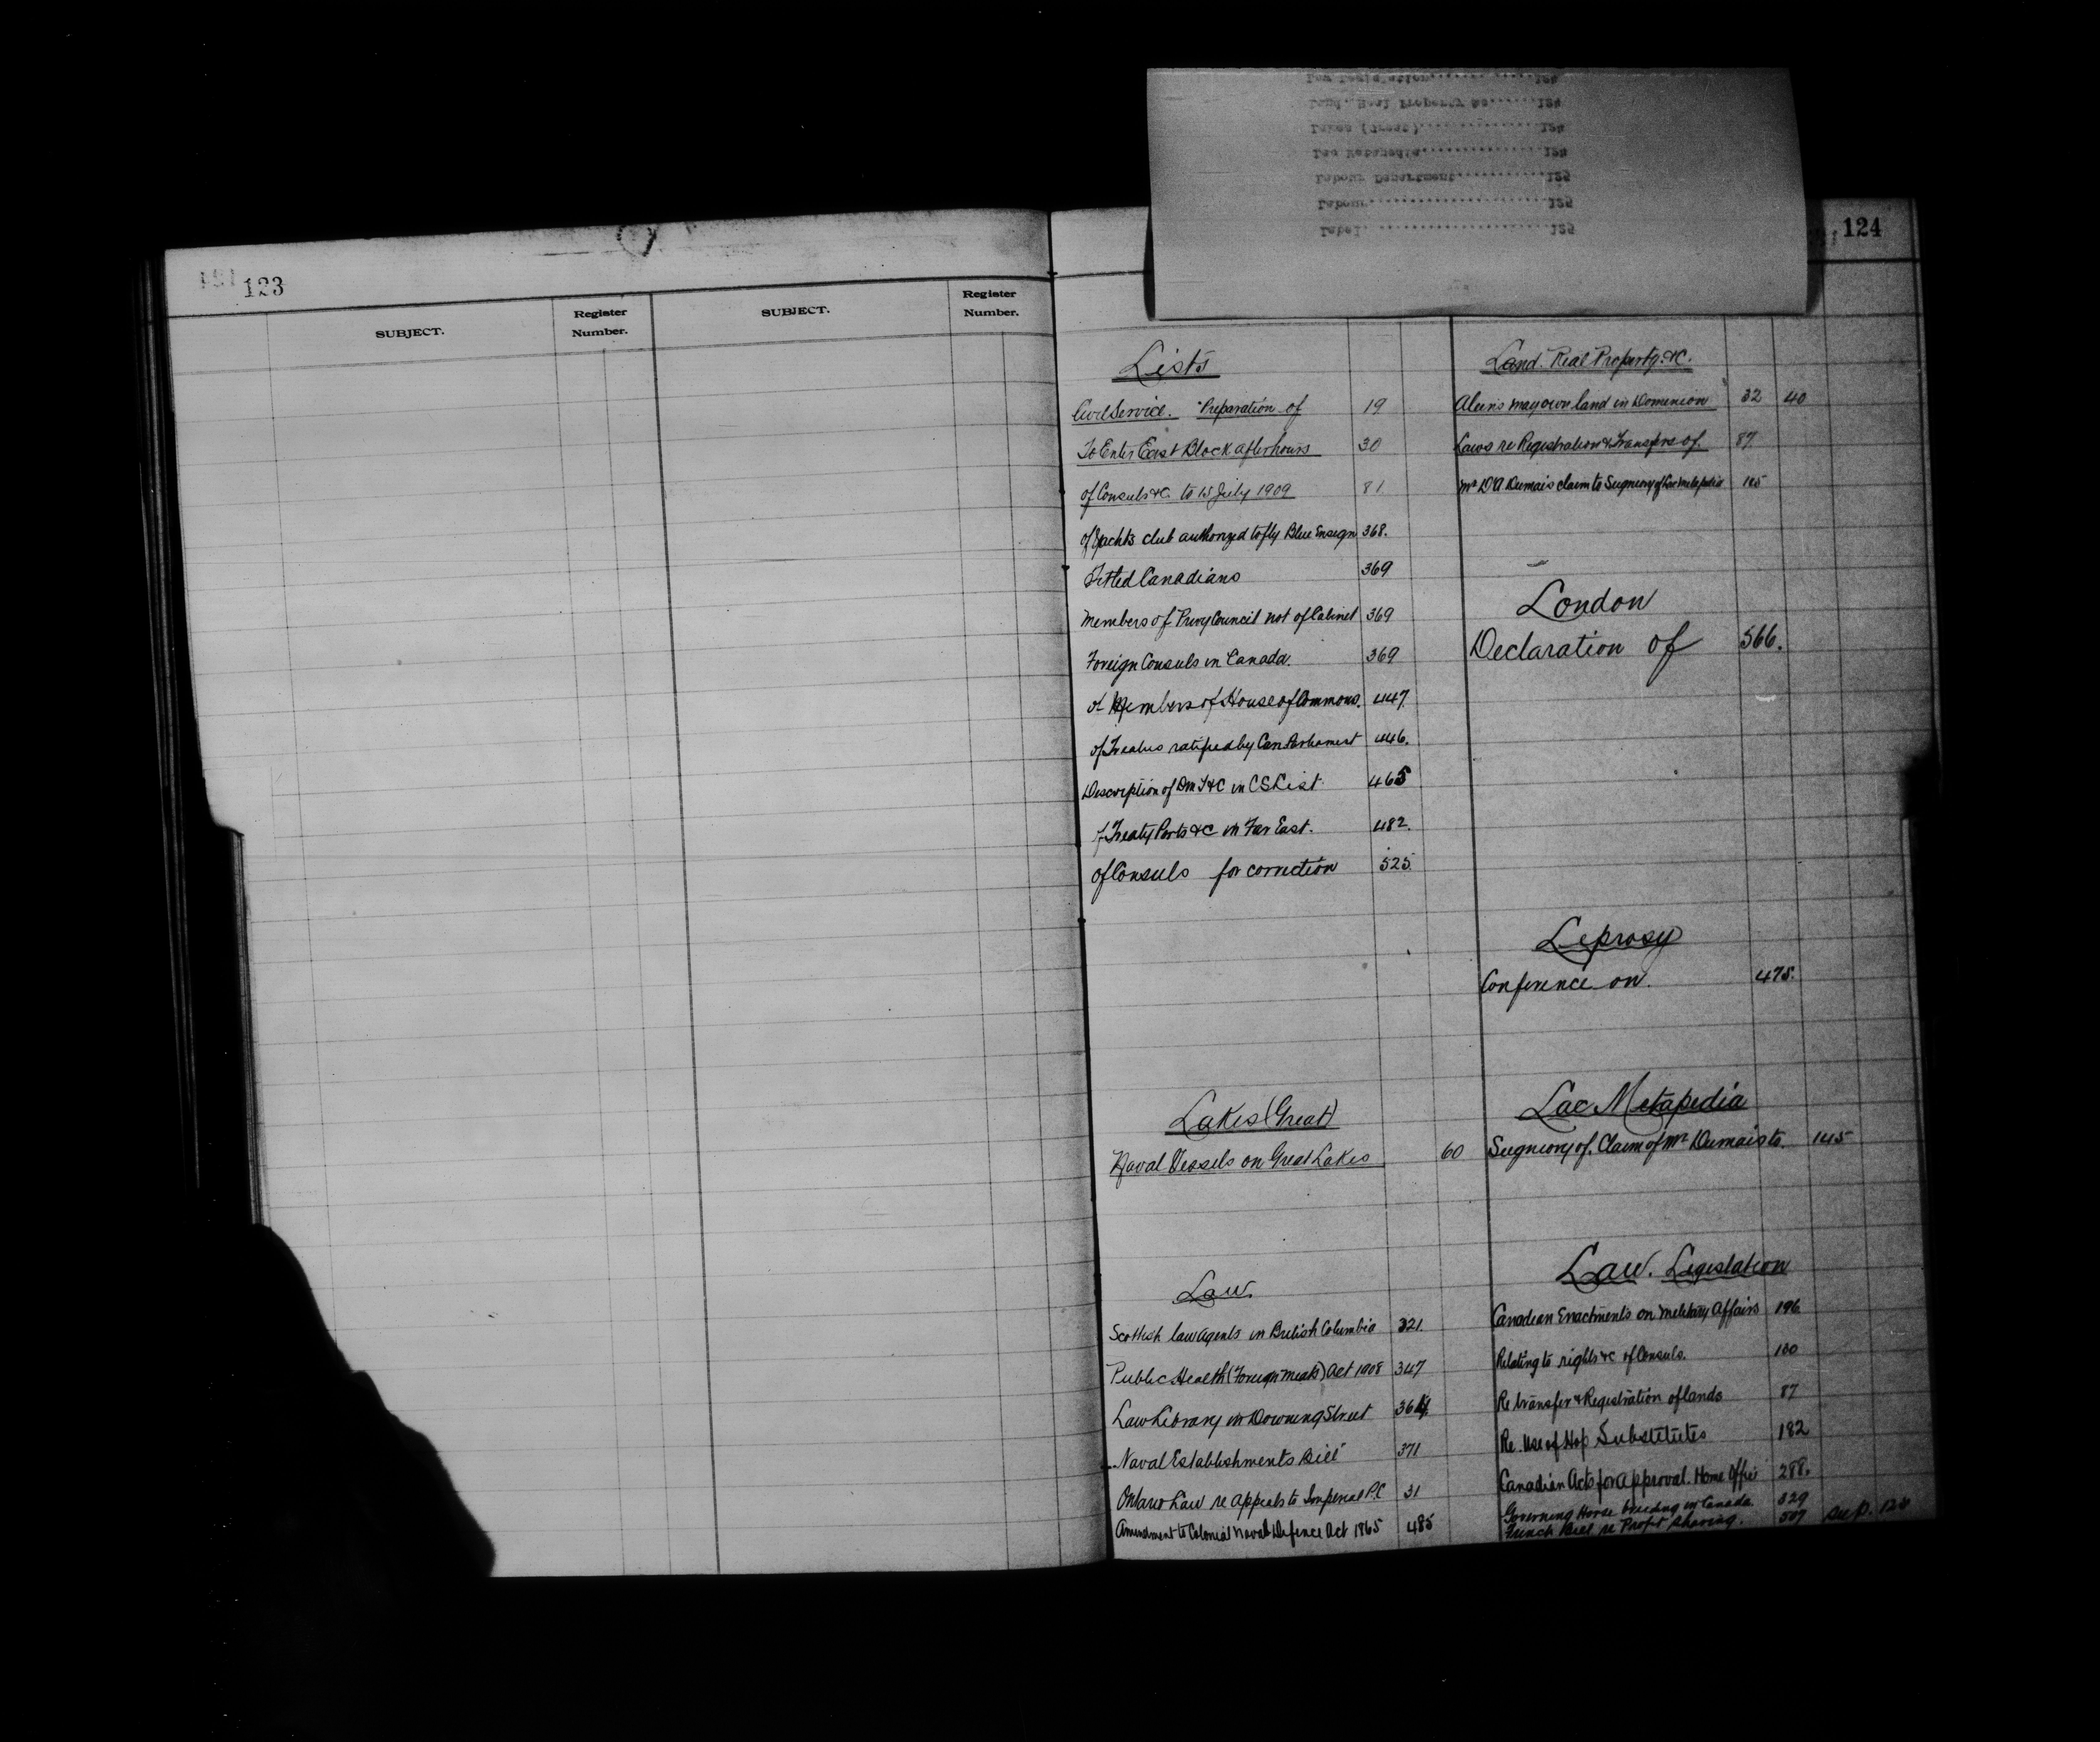 123
SUBJECT.
Register
Number.
SUBJECT.
Register
Number.
124
Law Legislation............124
Land. Real Property &c......124
Lakes (Great)...............124
Lac Metapedia...............124
Labour Department...........125
Labour......................125
Label. .....................125
Lists
Civil Service. Preparation of 19
To Enter East Block after hours 30
of Consuls &c. to 15 July 1909 81
of Yachts club authorized to fly Blue Ensign 368.
Titled Canadians 369
Members of Privy Council not of Cabinet 369
Foreign Consuls in Canada. 369
of Members of House of Commons. 447.
of Treaties ratified by Can Parliament 446.
Description of Dm T&C in CS List. 465
of Treaty Ports &c in Far East. 482.
of Consuls for correction 525.
Lakes (Great)
Naval Vessels on Great Lakes 60
Law.
Scottish law agents in British Columbia 321.
Public Health (Foreign Meats) Act 1908 347
Law Library in Downing Street 364.
Naval Establishments Bill 371
Ontario Law re Appeals to Imperial P.C 31
Amendment to Colonial Naval Defence Act 1865 485
Land. Real Property. &c.
Aliens may own land in Dominion 32 40
Laws re Registration & Transfere of. 87
Mr D'A Dumais claim to Seigneury of Lac Metapedia 145
London
Declaration of 566.
Leprosy
Conference on. 475.
Lac Metapedia
Seigneury of. Claim of Mr Dumais to. 145
Law. Legislation
Canadian Enactments on Military Affairs 196
Relating to rights &c of Consuls. 130
Re transfer & Registration of lands 87
Re. Use of Hop Substitutes 182
Canadian Acts for approval. Home Office 288.
Governing Horse breeding in Canada. 329
French Bill re Profit sharing. 509 See p. 128